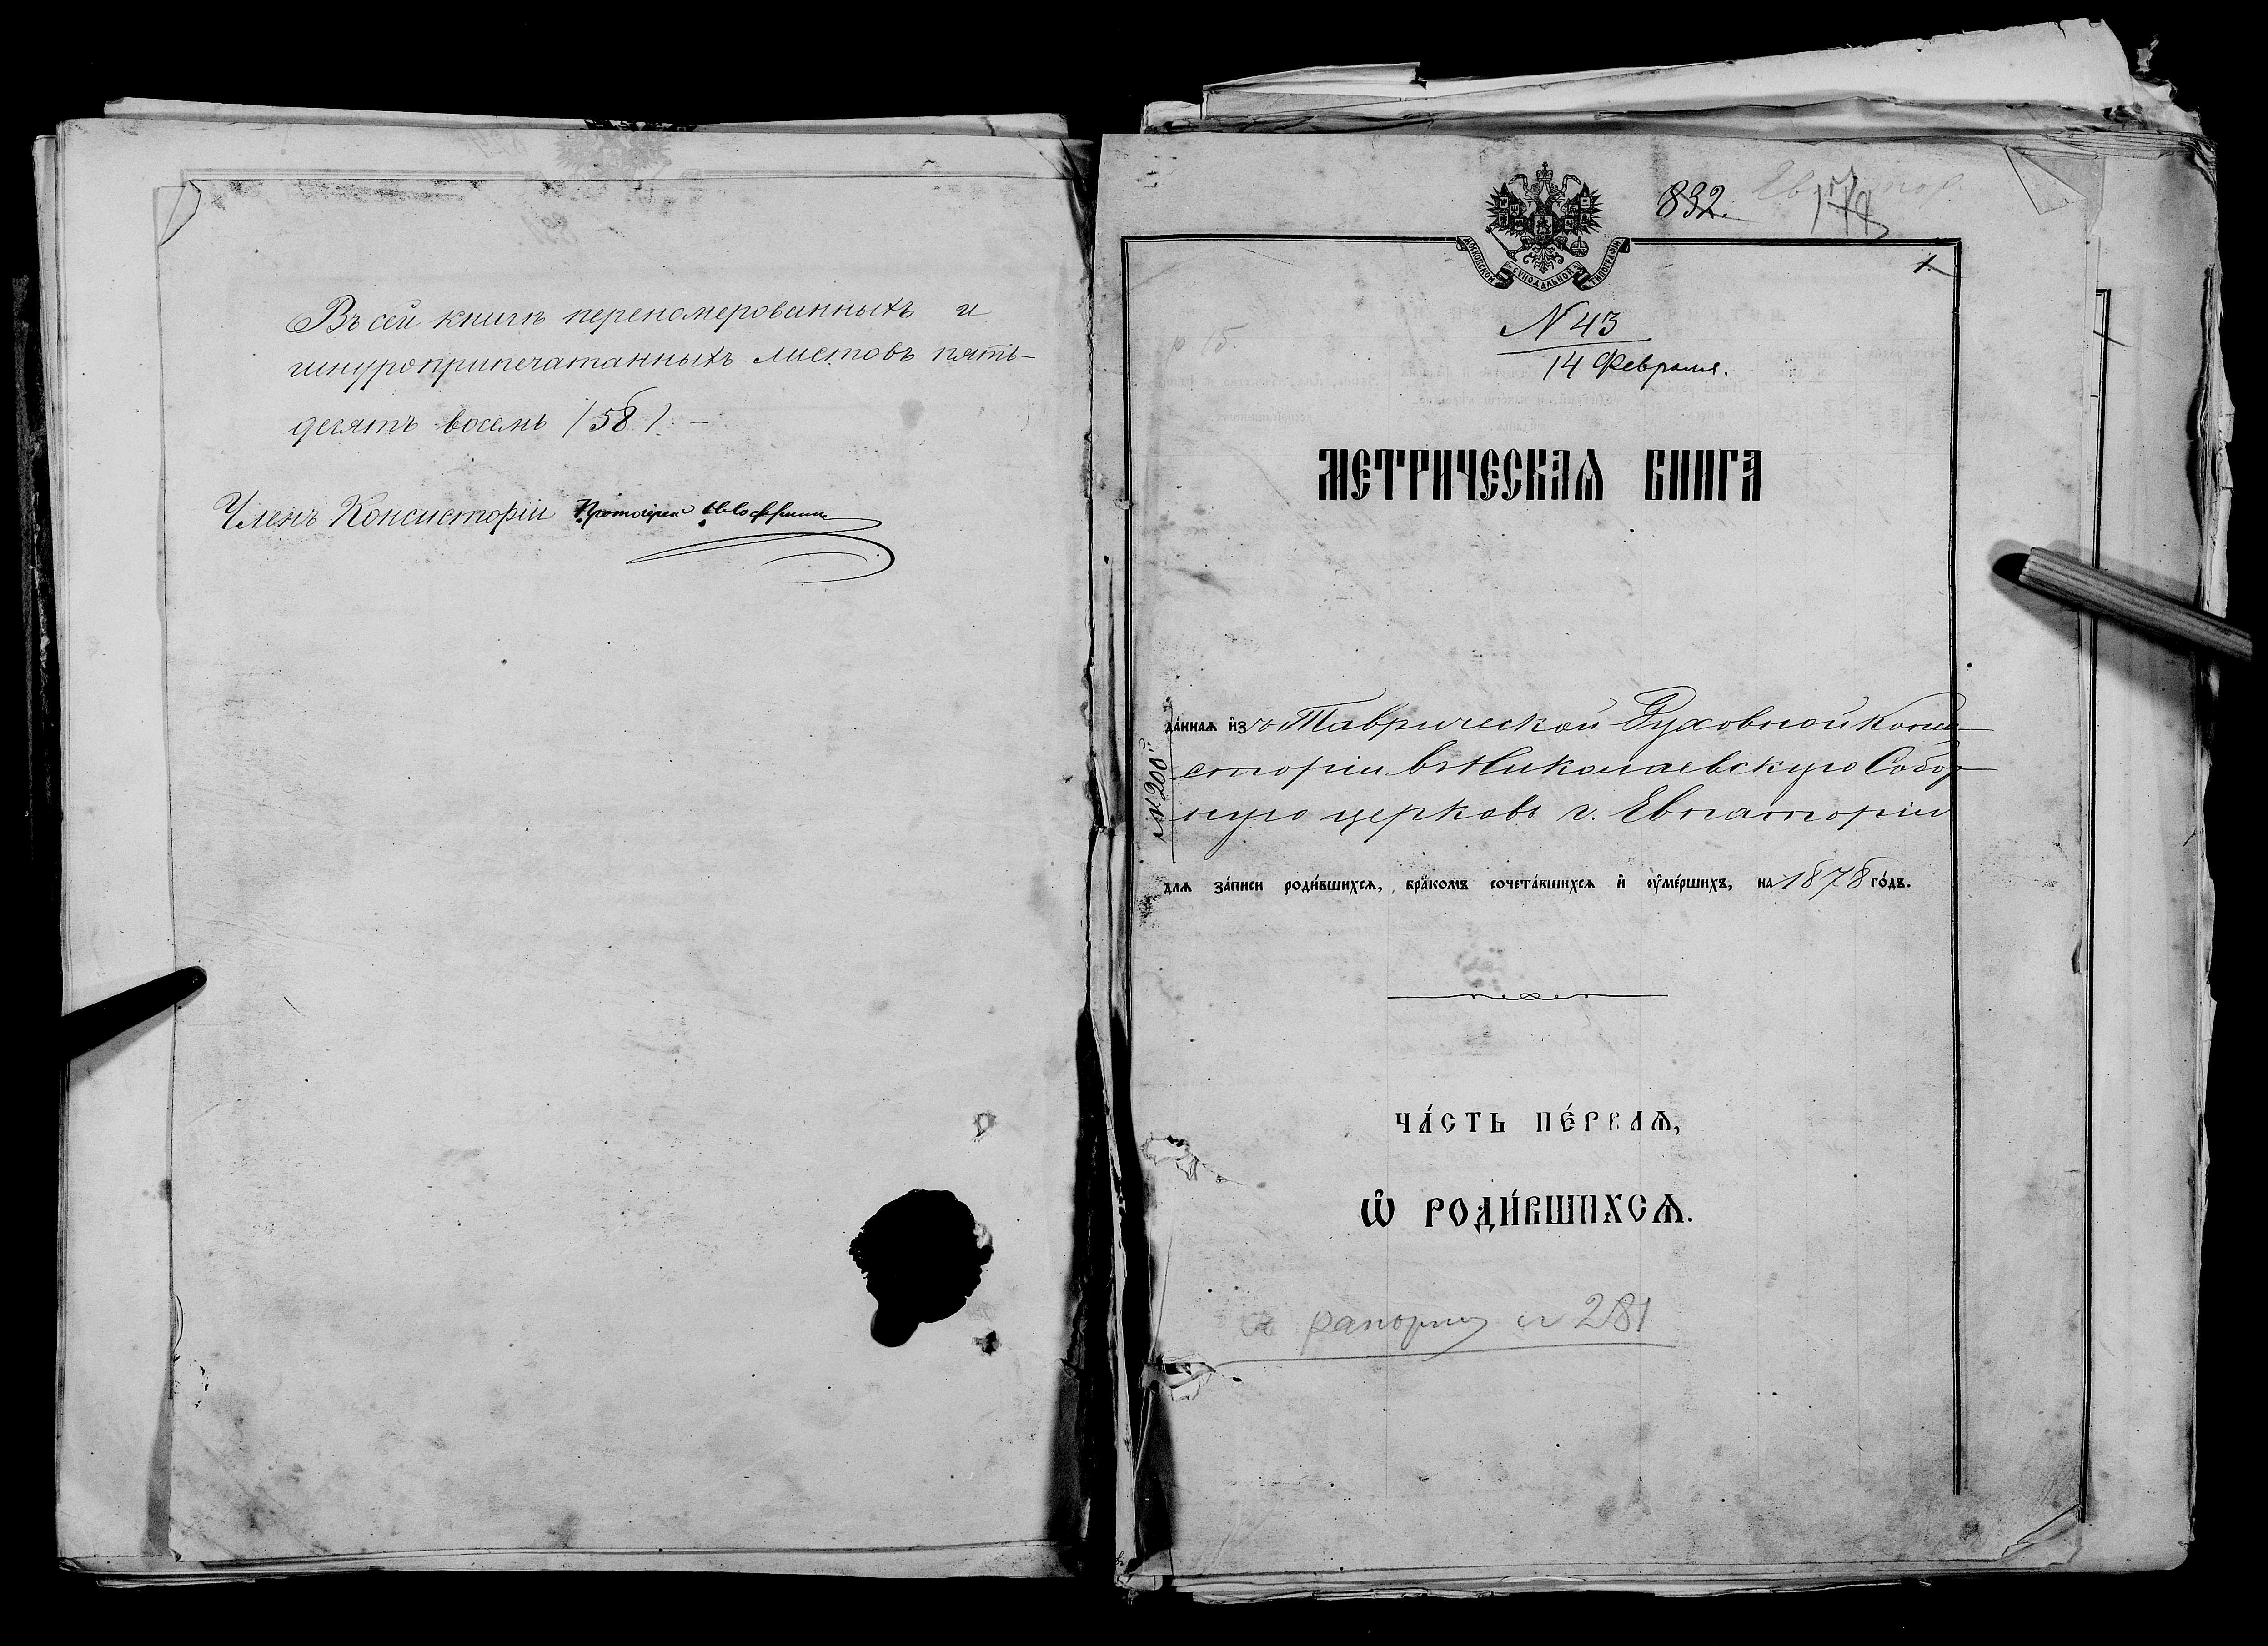 Въ сей книгѣ перенумерованныхъ и
шнуроприпечатанныхъ листовъ пять-
десятъ восемь (58). –
Членъ Консисторіи Протоіерей
832.
1
МОСКОВСКОЙ СѴНОДАЛЬНОЙ ТИПОГРАФІИ
N 43
14 Февраля.
МЕТРИЧЕСКАѦ КНИГА
да́ннаѧ и҆зъ Таврической Духовной Конси-
сторіи въ Николаевскую Собор
ную церковь г. Евпаторіи
№ 200
длѧ за́писи роди́вшихсѧ, бра́комъ сочета́вшихсѧ и҆ ᲂу҆ме́ршихъ, на 1878 го́дъ.
ЧА́СТЬ ПЕ́РВАѦ,
Ѡ҆ РОДИ́ВШИХСѦ.
рапорту № 281